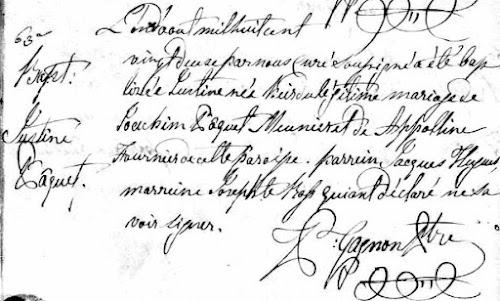 63e
Bapt:
Justine
Paquet.
L'onze août mil huit cent
vingt deux par nous curé soussigné a été bap
tisée Justine née hier du légitime mariage de
Joachim Paquet Meunier et de Appolline
Fournier de cette Paroisse. parrein Jacques
marreine Josephte qui ont déclaré ne sa
voir signer.
Gagnon Ptre